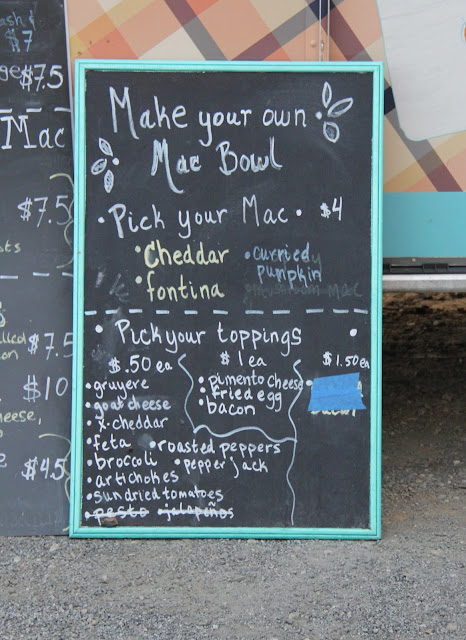 ash &
$7
$7.5
Mac
$7.5
$7.5
$10
cheese,
$4.5
Make your own
Mac Bowl
• Pick your Mac • $4
• Cheddar
• fontina
• curried
pumpkin
• Pick your toppings •
$.50 ea
• gruyere
• goat cheese
• x-cheddar
• feta • roasted peppers
• broccoli • pepper jack
• artichokes
• sundried tomatoes
• pesto • jalapeños
$1 ea
• pimento cheese
• fried egg
• bacon
$1.50 ea